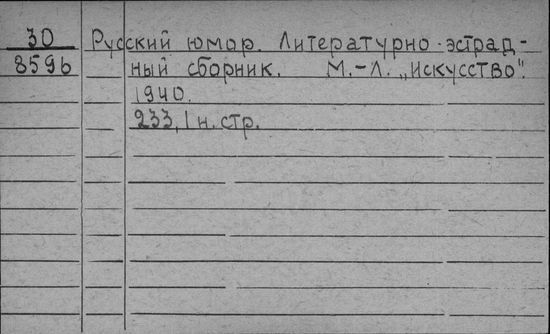 30 Русский юмор. Литературно-эстрад-
8596 ный сборник. М.-Л. „Искусство".
1940.
233, 1 н. стр.